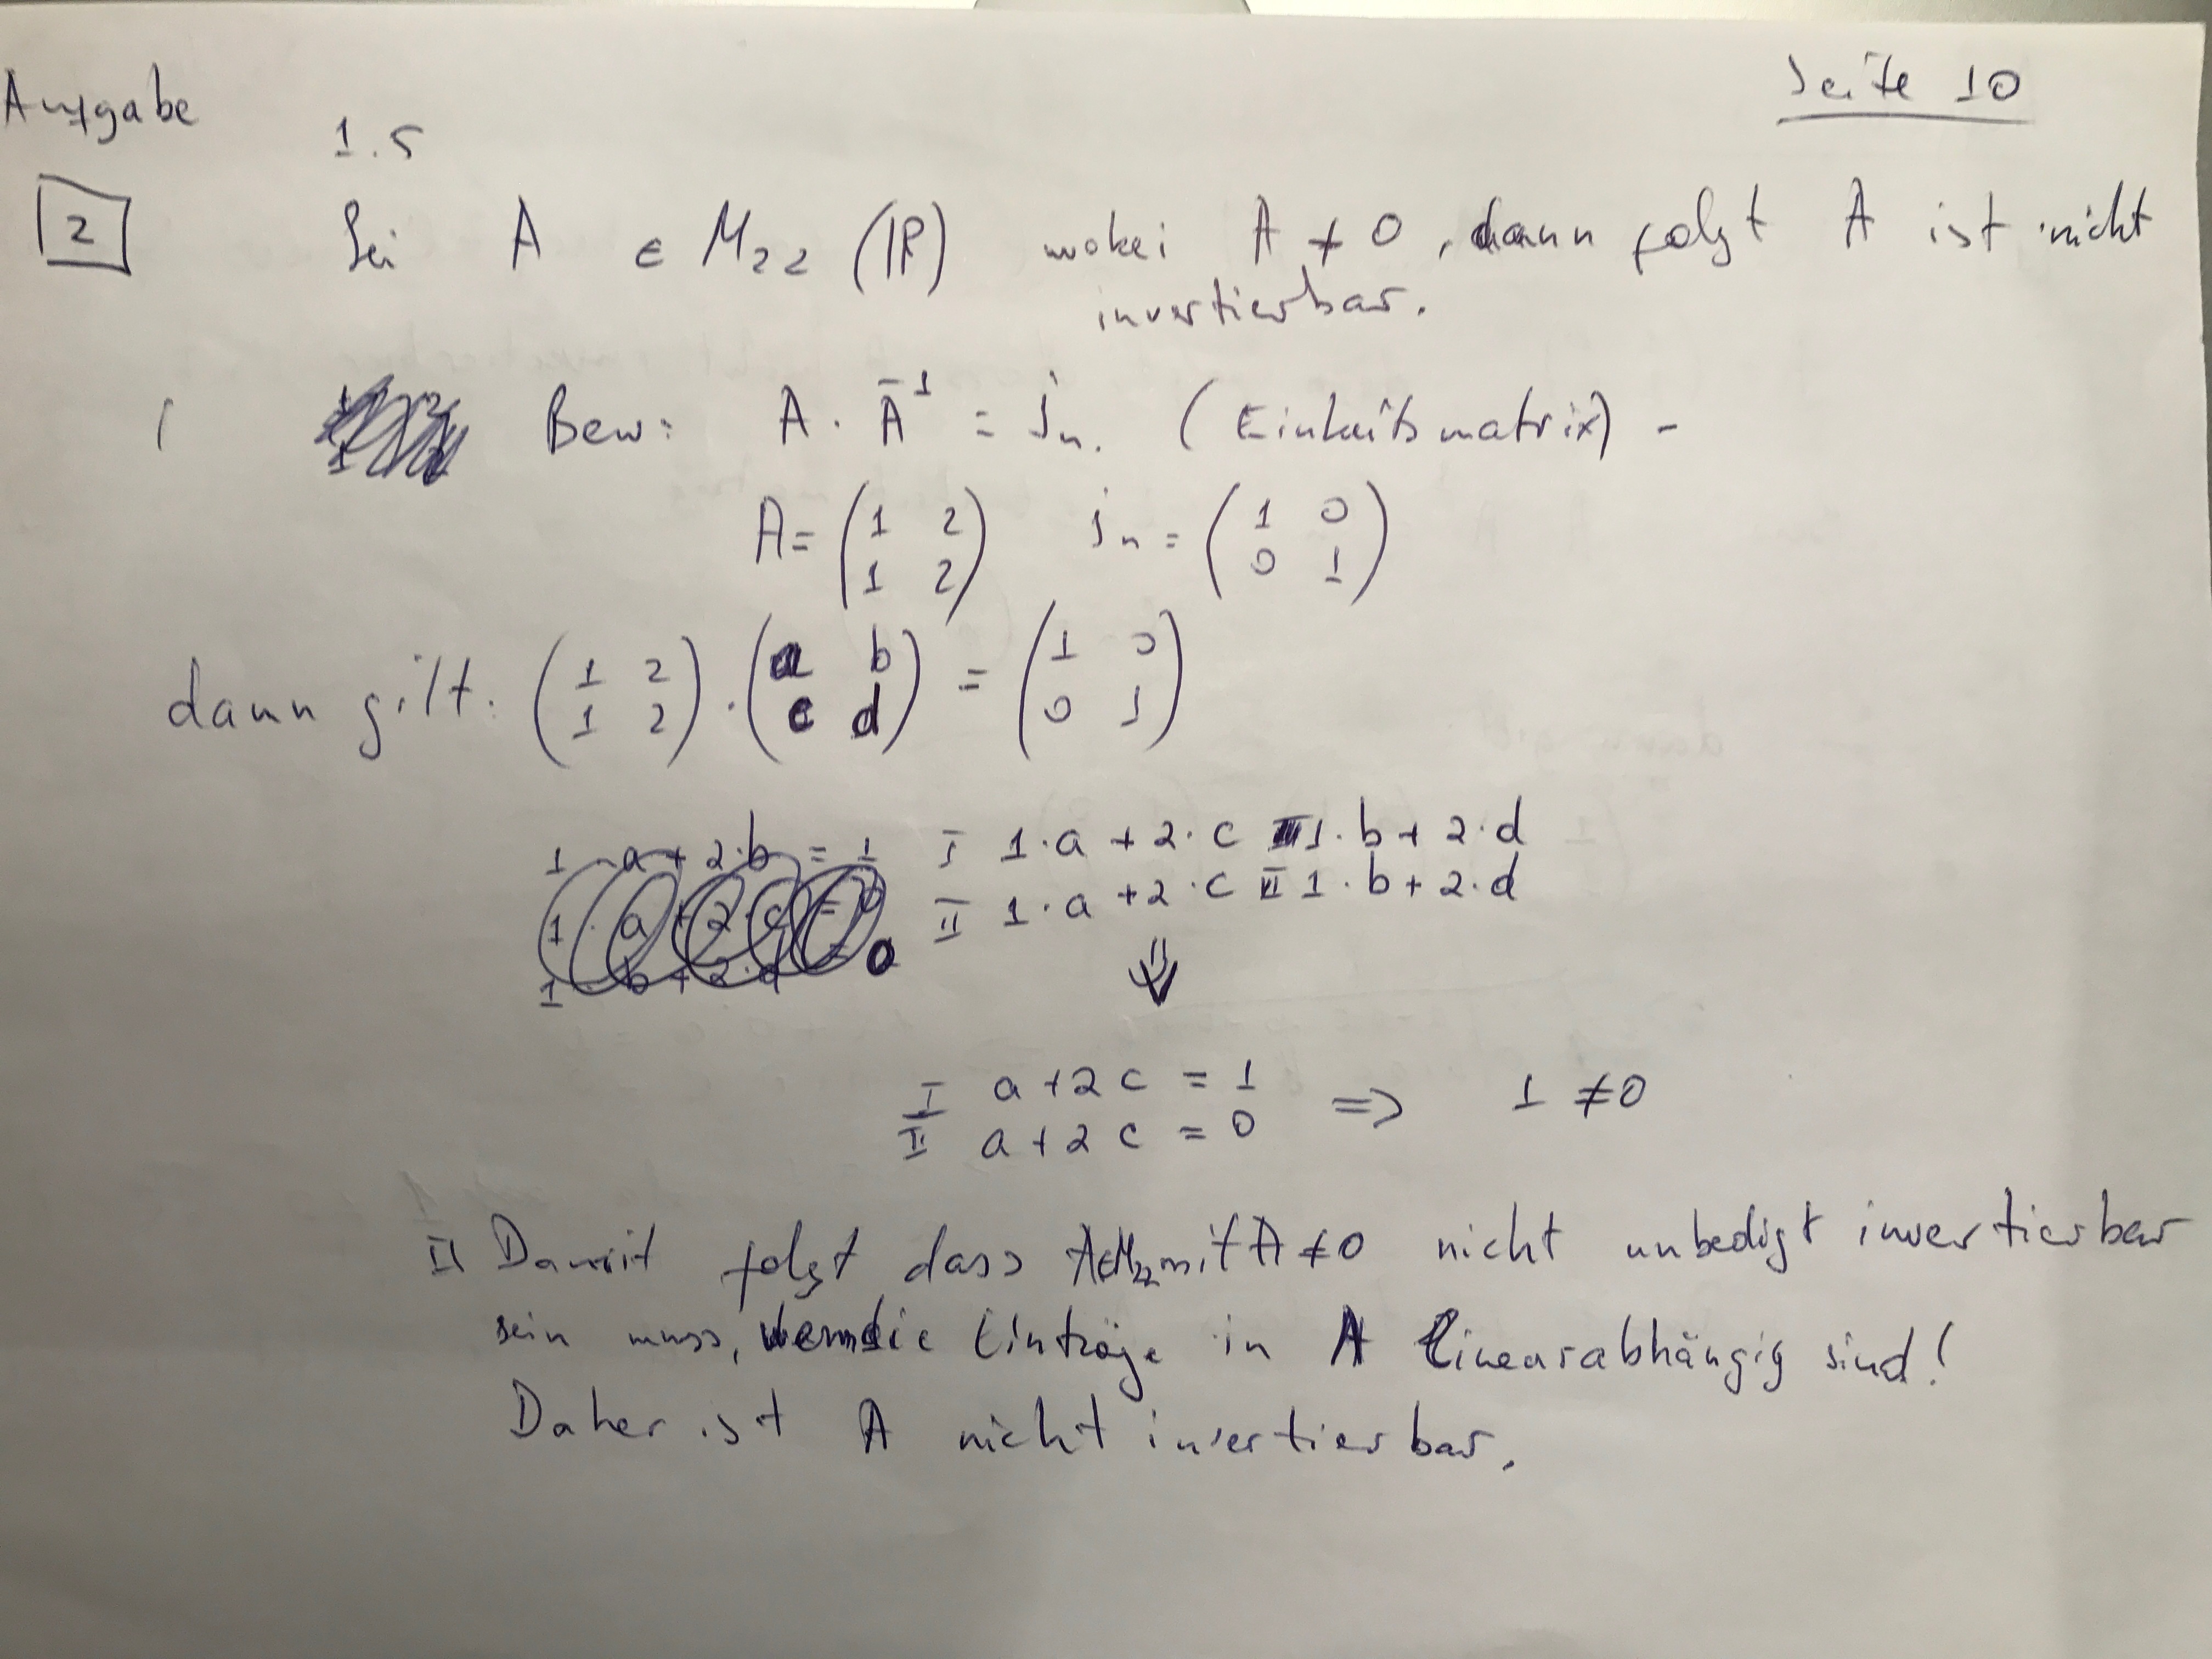 Aufgabe
Seite 10
1.5
2 Sei A ∈ M₂₂ (ℝ) wobei A ≠ 0, dann folgt A ist nicht
invertierbar.
Bew: A · A⁻¹ = Jn. (Einheitsmatrix) -
A = (1 2 jn = (1 0
1 2) 0 1)
dann gilt: (1 2 · (a b = (1 0
1 2) c d) 0 1)
1 · a + 2·b = 1 I 1·a + 2·c II 1·b + 2·d
1 · a + 2 · c = 0 II 1·a + 2·c II 1·b + 2·d
1 · b + 2·d = 0
⇓
I a + 2c = 1 ⇒ 1 ≠ 0
II a + 2c = 0
II Damit folgt dass A∈M₂₂ mit A ≠ 0 nicht unbedigt invertierbar
sein muss, wenn die Einträge in A linearabhängig sind!
Daher ist A nicht invertierbar.